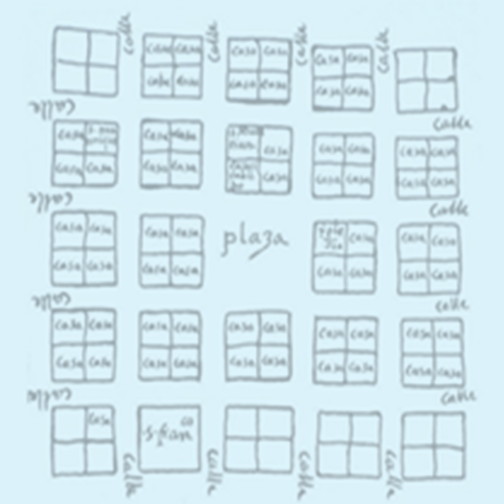 calle calle calle calle
casa casa casa casa casa casa
casa casa casa casa casa casa
calle calle
casa casa casa casa casa casa casa
casa casa casa casa casa casa casa casa casa
calle calle
casa casa casa casa plaza casa casa casa
casa casa casa casa casa casa casa casa
calle calle
casa casa casa casa casa casa casa casa casa casa
casa casa casa casa casa casa casa casa casa casa
calle calle
casa s. fran co
calle calle calle calle